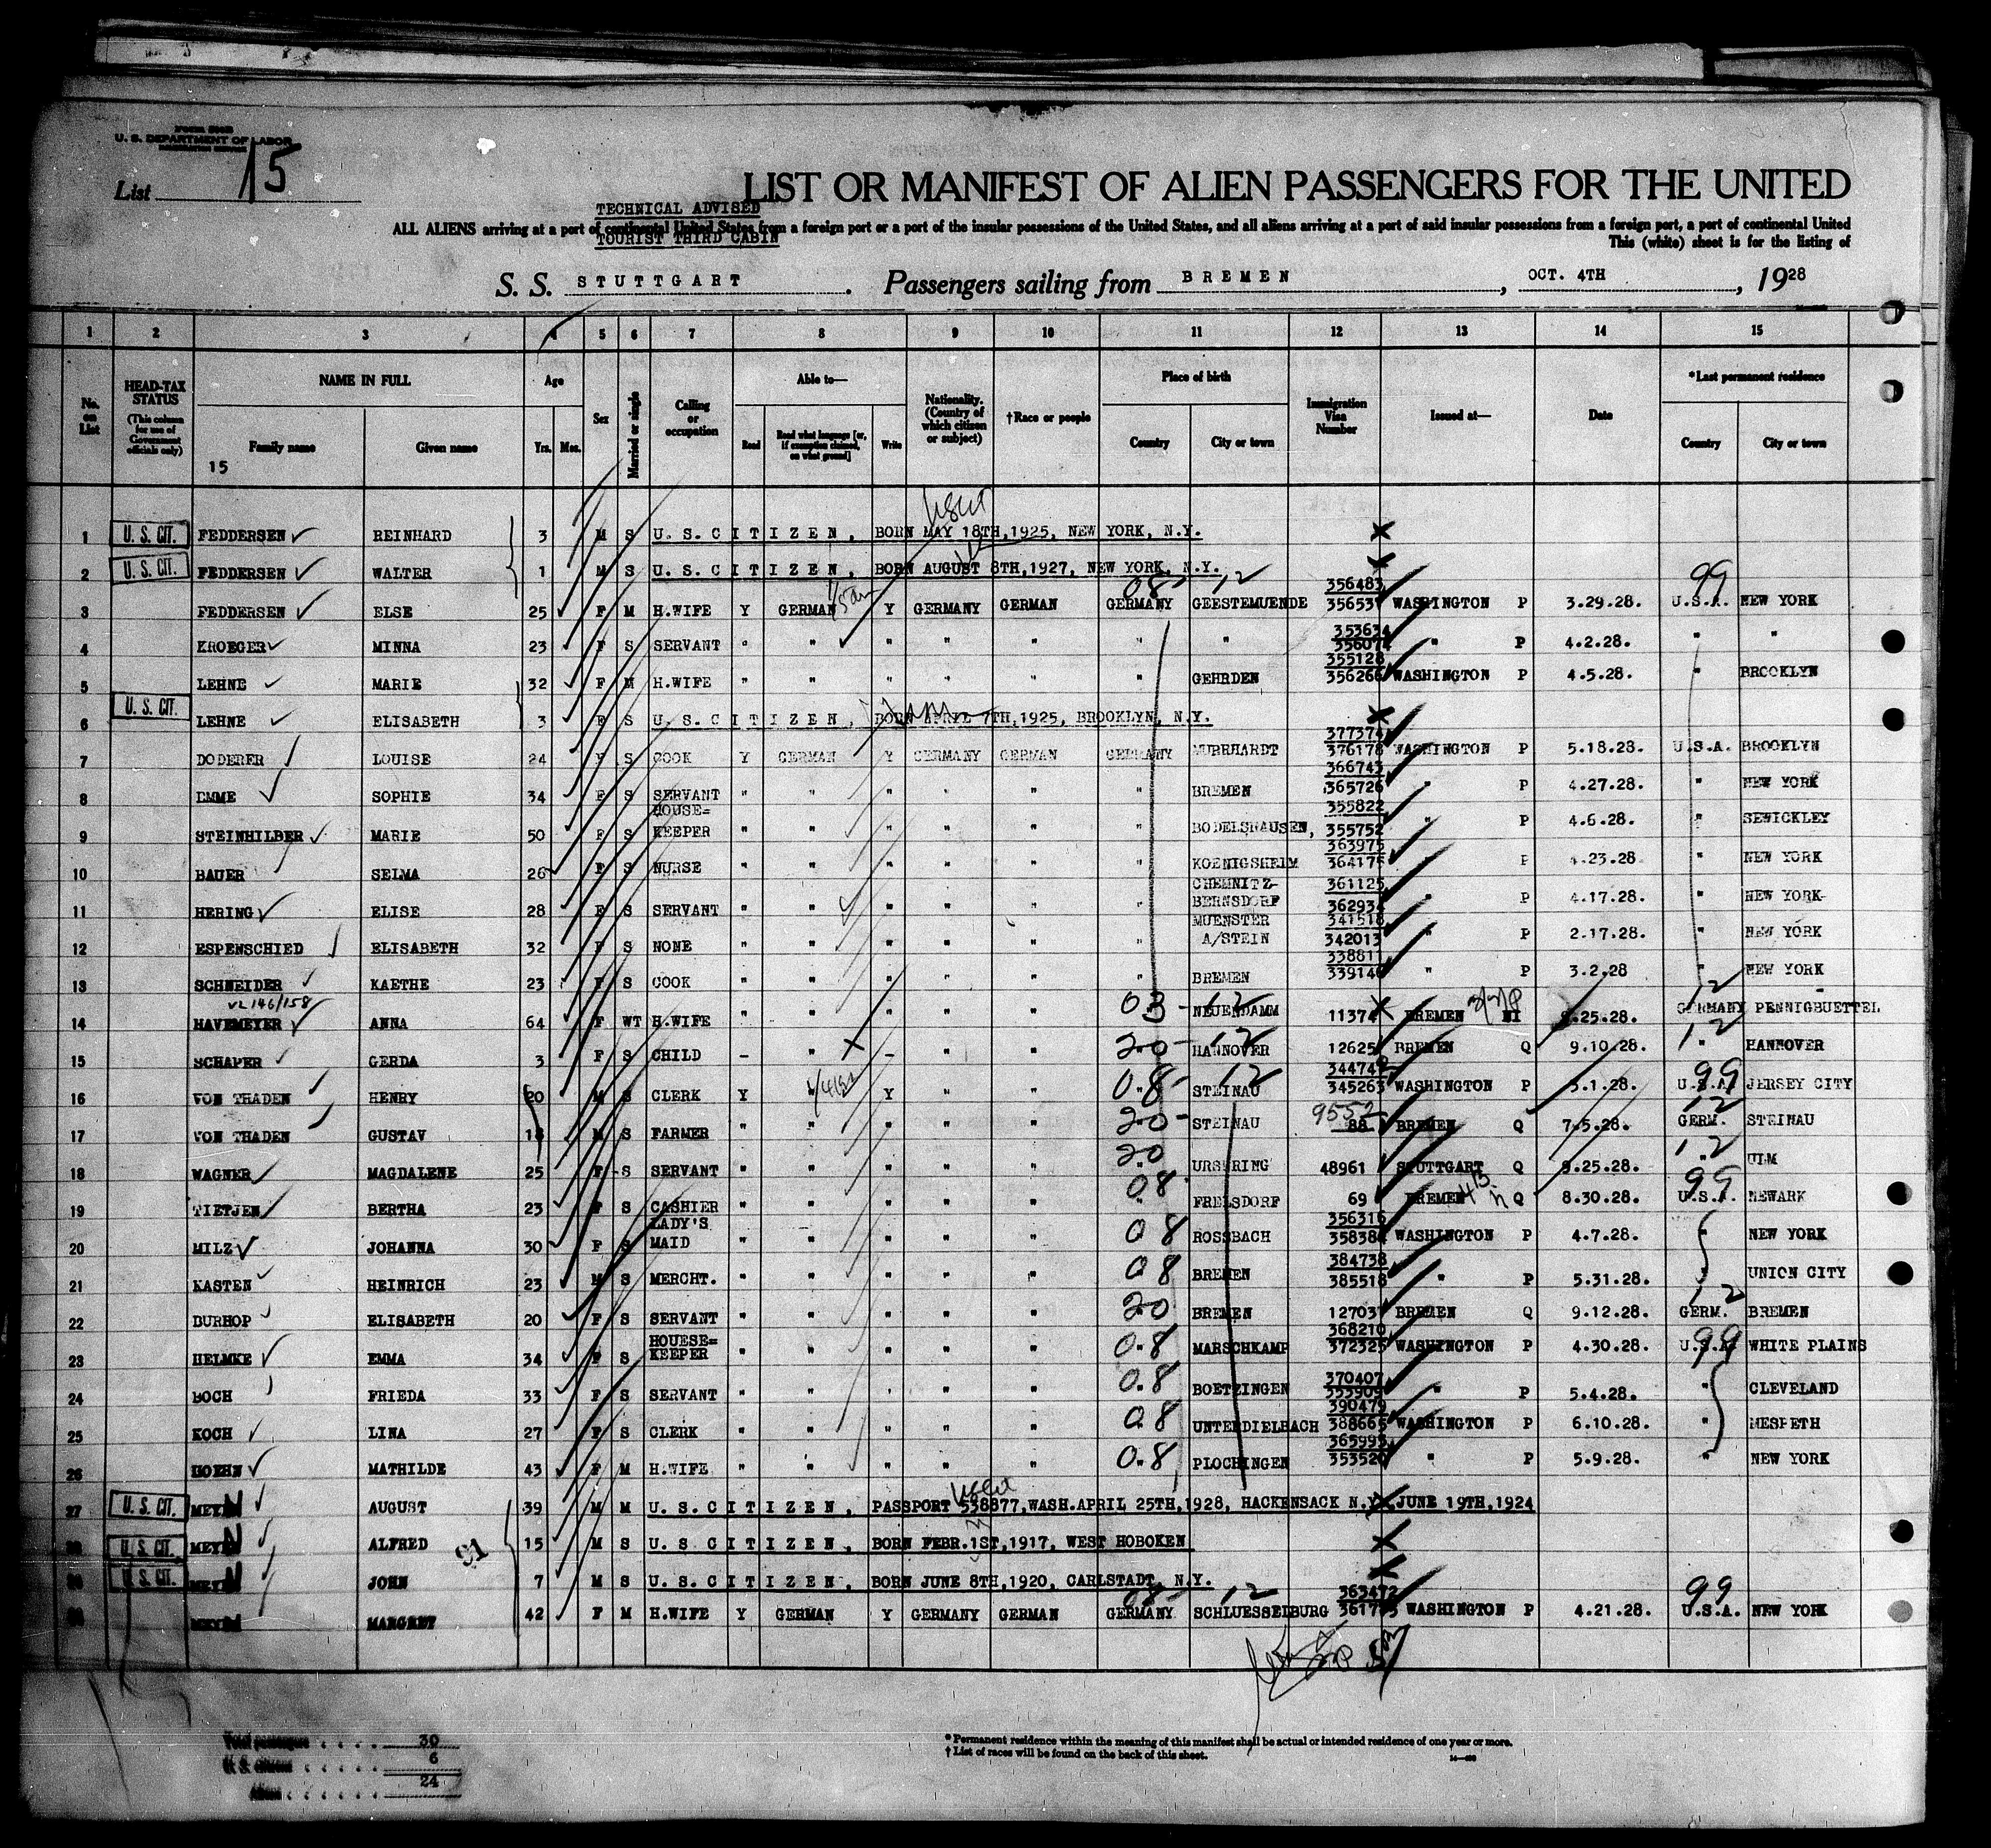 U. S. DEPARTMENT OF LABOR
List 15
LIST OR MANIFEST OF ALIEN PASSENGERS FOR THE UNITED
TECHNICAL ADVISED
ALL ALIENS arriving at a port of continental United States from a foreign port or a port of the insular possessions of the United States, and all aliens arriving at a port of said insular possessions from a foreign port, a port of continental United
TOURIST THIRD CABIN
This (white) sheet is for the listing of
S. S. STUTTGART. Passengers sailing from BREMEN, OCT. 4TH, 1928
1 2 3 4 5 6 7 8 9 10 11 12 13 14 15
No. on List
HEAD-TAX STATUS (This column for use of Government officials only)
NAME IN FULL Family name Given name
15
Age Yrs. Mos.
Sex
Married or single
Calling or occupation
Able to— Read Read what language [or, if exemption claimed, on what ground] Write
Nationality. (Country of which citizen or subject)
†Race or people
Place of birth Country City or town
Immigration Visa Number
Issued at—
Date
*Last permanent residence Country City or town
1 U. S. CIT. FEDDERSEN REINHARD 3 M S U. S. CITIZEN, BORN MAY 18TH, 1925, NEW YORK, N.Y.
2 U. S. CIT. FEDDERSEN WALTER 1 M S U. S. CITIZEN, BORN AUGUST 8TH, 1927, NEW YORK, N.Y.
3 FEDDERSEN ELSE 25 F M H.WIFE Y GERMAN Y GERMANY GERMAN 08 GERMANY 12 GEESTEMUENDE 356483 35653 WASHINGTON P 3.29.28. 99 U.S.A. NEW YORK
4 KROEGER MINNA 23 F S SERVANT " " " " " " " 353634 356074 " P 4.2.28. " "
5 LEHNE MARIE 32 F M H.WIFE " " " " " " GEHRDEN 355128 356266 WASHINGTON P 4.5.28. " BROOKLYN
6 U. S. CIT. LEHNE ELISABETH 3 F S U. S. CITIZEN, BORN APRIL 7TH, 1925, BROOKLYN, N.Y.
7 DODERER LOUISE 24 F S COOK Y GERMAN Y GERMANY GERMAN GERMANY MURRHARDT 377374 376178 WASHINGTON P 5.18.28. U.S.A. BROOKLYN
8 EMME SOPHIE 34 F S SERVANT " " " " " " BREMEN 366743 365726 " P 4.27.28. " NEW YORK
9 STEINHILBER MARIE 50 F S HOUSE= KEEPER " " " " " " BODELSHAUSEN, 355822 355752 " P 4.6.28. " SEWICKLEY
10 BAUER SELMA 26 F S NURSE " " " " " " KOENIGSHEIM 363975 364175 " P 4.23.28 " NEW YORK
11 HERING ELISE 28 F S SERVANT " " " " " " CHEMNITZ- BERNSDORF 361125 362934 " P 4.17.28. " NEW YORK
12 ESPENSCHIED ELISABETH 32 F S NONE " " " " " " MUENSTER A/STEIN 341518 342013 " P 2.17.28. " NEW YORK
13 SCHNEIDER KAETHE 23 F S COOK " " " " " " BREMEN 338811 339140 " P 3.2.28 " NEW YORK
VL 146/158
14 HAVEMEYER ANNA 64 F WT H.WIFE " " " " " 03 - 12 NEUENDAMM 11374 BREMEN NI .25.28. 12 GERMANY PENNIGBUETTEL
15 SCHAPER GERDA 3 F S CHILD - " - " " 20 - 12 HANNOVER 12625 BREMEN Q 9.10.28. 12 " HANNOVER
16 VON THADEN HENRY 20 M S CLERK Y " Y " " 08 - 12 STEINAU 34474 345263 WASHINGTON P 3.1.28. 99 U.S.A. JERSEY CITY
17 VON THADEN GUSTAV 18 M S FARMER " " " " " 20 - STEINAU 9552 88 BREMEN Q 7.5.28. 12 GERM. STEINAU
18 WAGNER MAGDALENE 25 F S SERVANT " " " " " 20 URSPRING 48961 STUTTGART Q 8.25.28. 12 " ULM
19 TIETJEN BERTHA 23 F S CASHIER " " " " " 08 FRELSDORF 69 BREMEN Q 8.30.28. 99 U.S.A. NEWARK
20 MILZ JOHANNA 30 F S LADY'S MAID " " " " " 08 ROSSBACH 356316 358384 WASHINGTON P 4.7.28. " NEW YORK
21 KASTEN HEINRICH 23 M S MERCHT. " " " " " 08 BREMEN 384738 385518 " P 5.31.28. " UNION CITY
22 DURHOP ELISABETH 20 F S SERVANT " " " " " 20 BREMEN 12703 BREMEN Q 9.12.28. 12 GERM. BREMEN
23 HELMKE EMMA 34 F S HOUESE= KEEPER " " " " " 08 MARSCHKAMP 368210 372325 WASHINGTON P 4.30.28. 99 U.S.A. WHITE PLAINS
24 BOCH FRIEDA 33 F S SERVANT " " " " " 08 BOETZINGEN 370407 353909 " P 5.4.28. " CLEVELAND
25 KOCH LINA 27 F S CLERK " " " " " 08 UNTERDIELBACH 390479 388665 WASHINGTON P 6.10.28. " MESPETH
26 HOEHN MATHILDE 43 F M H.WIFE " " " " " 08 PLOCHINGEN 365995 353520 " P 5.9.28. " NEW YORK
27 U. S. CIT. MEYN AUGUST 39 M M U. S. CITIZEN, PASSPORT 538877, WASH. APRIL 25TH, 1928, HACKENSACK N.Y. JUNE 19TH, 1924
U. S. CIT. MEYN ALFRED 15 M S U. S CITIZEN, BORN FEBR. 1ST, 1917, WEST HOBOKEN
91
U. S. CIT. MEYN JOHN 7 M S U. S. CITIZEN, BORN JUNE 8TH, 1920, CARLSTADT, N.Y.
MEYN MARGRET 42 F M H.WIFE Y GERMAN Y GERMANY GERMAN 08 - GERMANY 12 SCHLUESSELBURG 363472 WASHINGTON P 4.21.28. 99 U.S.A. NEW YORK
Total passengers 30
U. S. citizens 6
Aliens 24
* Permanent residence within the meaning of this manifest shall be actual or intended residence of one year or more.
† List of races will be found on the back of this sheet.